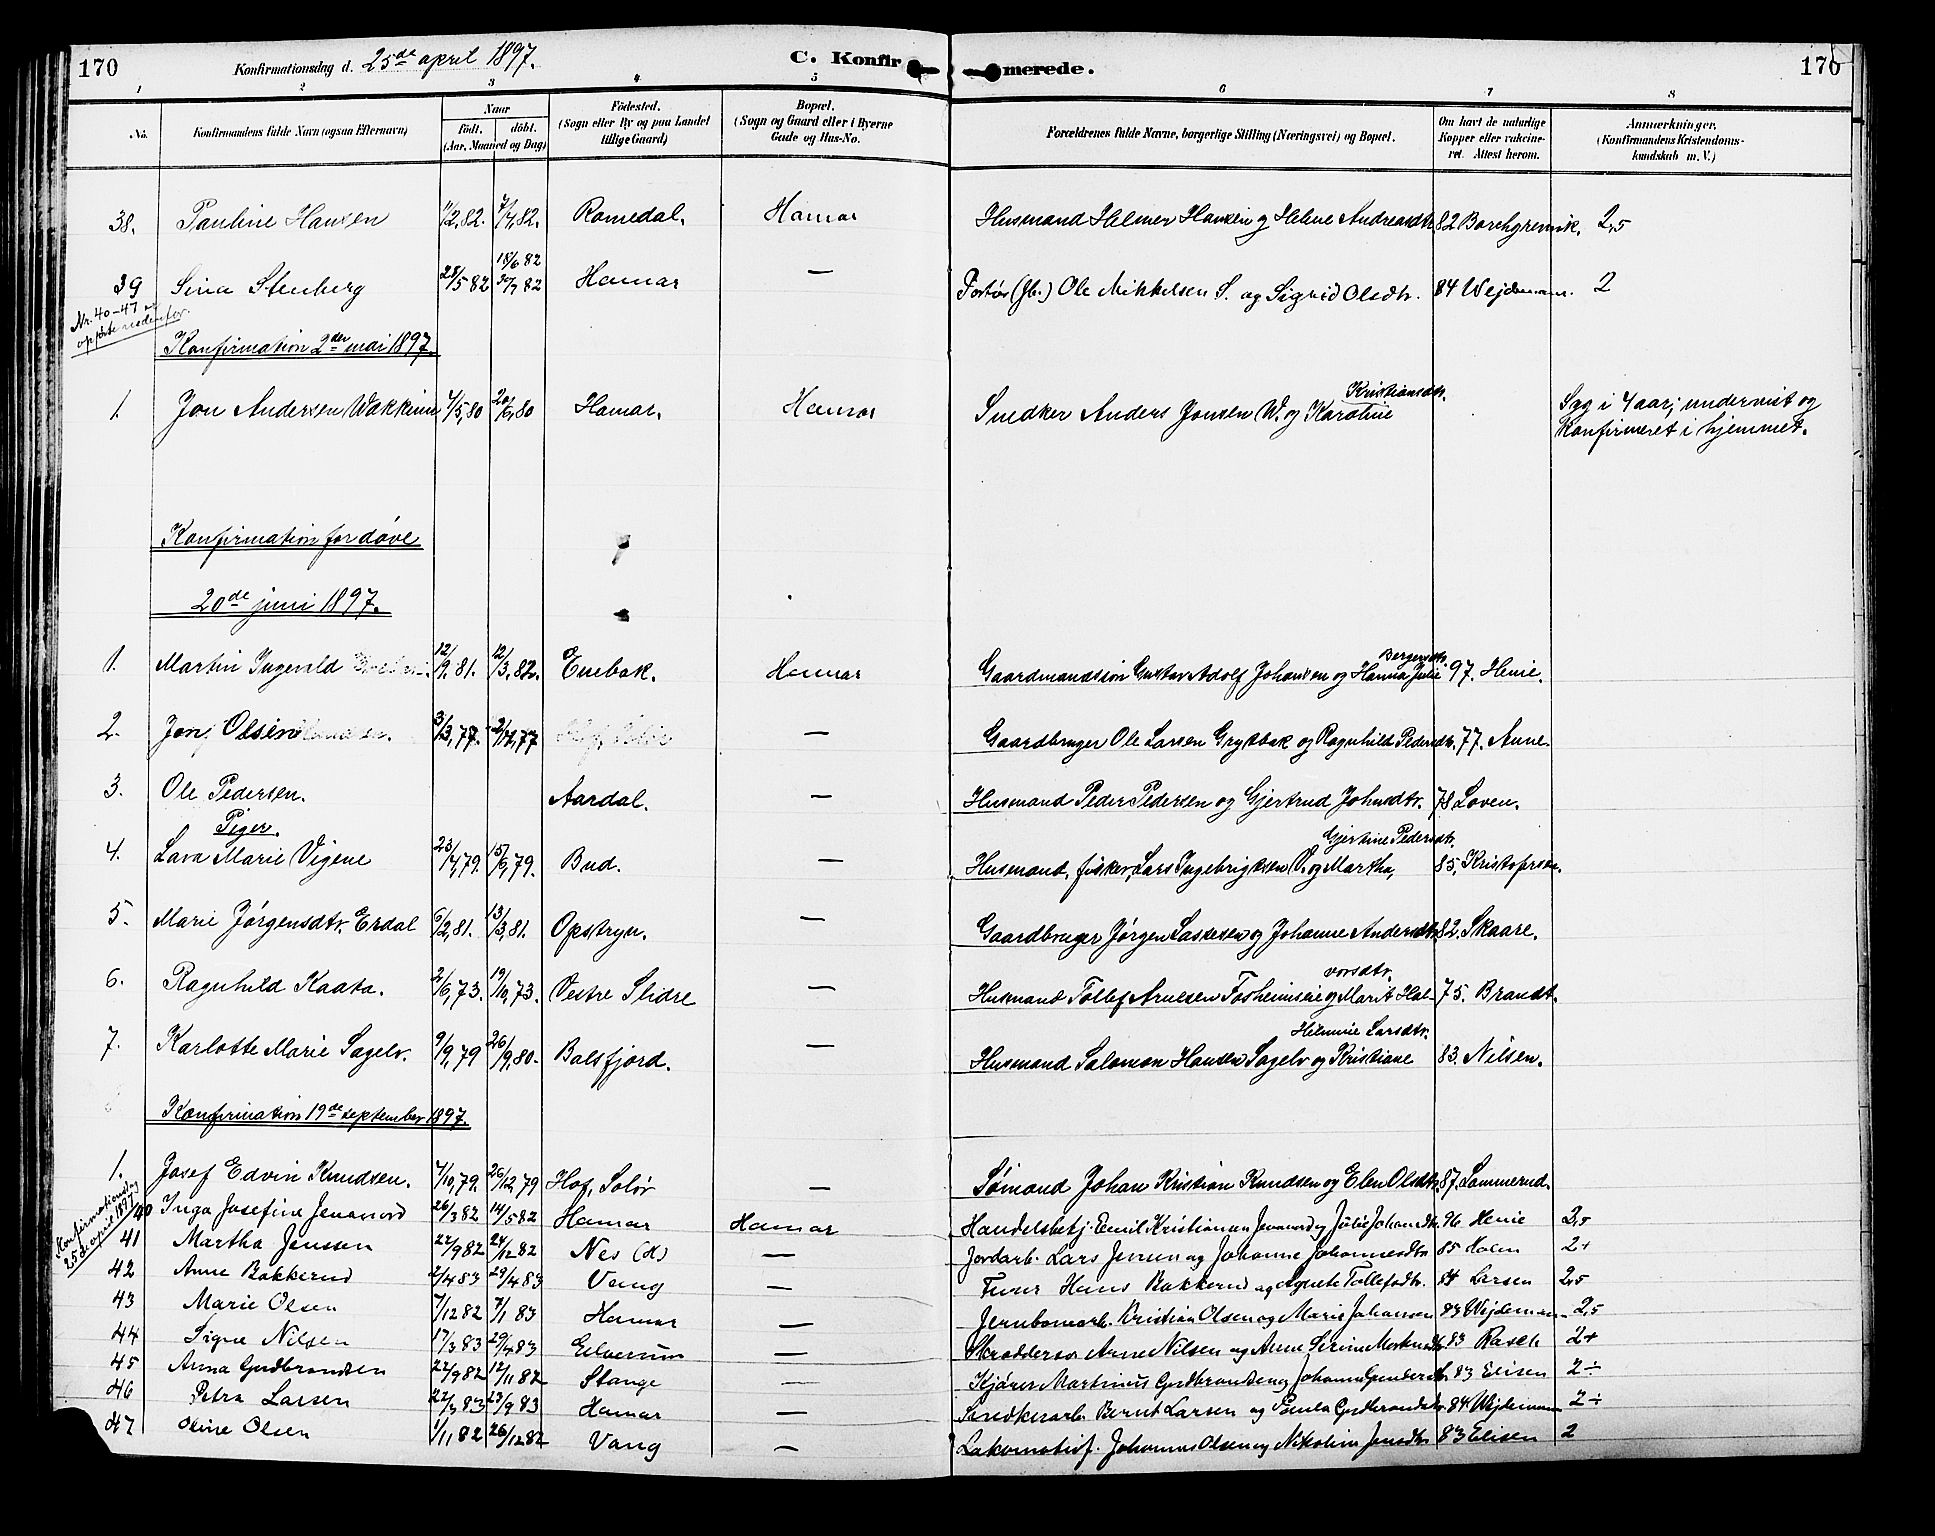 170 Konfirmationsdag d. 25de april 1897. C. Konfir merede. 170
1 2 3 4 5 6 7 8
No. Konfirmandens fulde Navn (ogsaa Efternavn) Naar födt. döbt. (Aar, Maaned og Dag) Födested. (Sogn eller By og paa Landet tillige Gaard) Bopæl. (Sogn og Gaard eller i Byerne Gade og Hus-No. Forældrenes fulde Navne, borgerlige Stilling (Næringsvei) og Bopæl. Om havt de naturlige Kopper eller vakcineret. Attest herom. Anmærkninger. (Konfirmandens Kristendomskundskab m. V.)
38. Pauline Hansen 11/2,82. Romedal. Hamar Husmand Helmer Hansen og Helene Andreasdtr 82 Borchgrevink. 2,5
18/6 82
39 Sina Stenberg 28/5 82 30/7 82 Hamar — Ole Mikkelsen S. og Sigrid Olsdtr. 84 Wejdemann. 2
Nr. 40-47 er opført nedenfor.
Konfirmation 2den mai 1897.
Kristiansdtr.
1. Jon Andersen Wakkinn 4/5,80 20/6,80 Hamar. Hamar Snedker Anders Jonsen W. og Karoline Syg i 4 aar; undervist og
konfirmeret i hjemmet.
Konfirmation for døve
20de juni 1897.
Bergersdtr.
1. Martin Ingevald 12/9,81. 12/3,82. Enebak. Hamar Gaardmandssøn Gustav Adolf Johansen og Hanna Julie 97. Henie.
2. Olsen 3/3,77. — Gaardbruger Ole Larsen Grytbak og Ragnhild Pedersdtr. 77. Aune.
3. Ole Pedersen. Aardal. — Husmand Peder Pedersen og Gjertrud Johnsdtr. 78. Loven.
Piger. Gjertine Pedersdtr.
4. Lava Marie Vigene 23/4,79. 15/6,79. Bud. — Husmand, fisker, Lars Ingebrigtsen V. og Martha, 85, Kristofersen.
5. Marie Jørgensdtr. Erdal 6/2,81. 13/3,81. Opstryn. — Gaardbruger Jørgen Lassesen og Johanne Andersdtr. 82. Skaare.
vorsdtr.
6. Ragnhild Kaata. 2/6,73. 19/10,73. Vestre Slidre — Husmand Tollef Arnesen Fosheimseie og Marit Hal- 75. Brandt.
Helmine Larsdtr.
7. Karlotte Marie Sagelv. 9/9,79 26/9,80. Balsfjord. — Husmand Salomon Hansen Sagelv og Kristiane 83. Nilsen.
Konfirmation 19de september 1897.
1. Josef Edvin Knudsen. 4/10,79. 26/12,79 Hof, Solør — Sømand Johan Kristian Knudsen og Elen Olsdtr. 87. Lammerud.
Konfirmationsdag 25de april 1897
40 Inga Josefine Jevanord 26/3 82 14/5 82 Hamar Hamar Handelsbetj. Emil Kristiansen Jevanord og Julie Johansdtr. 96 Henie 2,5
41 Martha Jenssen 22/9 82 24/12 82 Nes (H) — Jordarb. Lars Jensen og Johanne Johannesdtr 85 Holm 2+
42 Anne Bakkerud 2/4 83 29/4 83 Vang — Hans Bakkerud og Agnete Tollefsdtr. 84 Larsen 2,5
43 Marie Olsen 7/12 82 7/1 83 Hamar — Jernbanearb. Kristian Olsen og Marie Johansen 83 Wejdemann 2,5
44 Signe Nilsen 17/3 83 29/4 83 Elverum — Skræddersv Arne Nilsen og Anne Serine 83 Rasch 2+
45 Anna Gudbrandsen 22/9 82 12/11 82 Stange — Kjører Martinus Gudbrandsen og Johanne Gundersdtr 83 Elisen 2÷
46 Petra Larsen 22/7 83 23/9 83 Hamar — Snedkerarb. Bernt Larsen og Paula Gudbrandsdtr. 84 Wejdemann 2÷
47 Oline Olsen 1/11 82 26/12 82 Vang — Lokomotivf. Johannes Olsen og Nikoline Jensdtr 83 Elisen 2